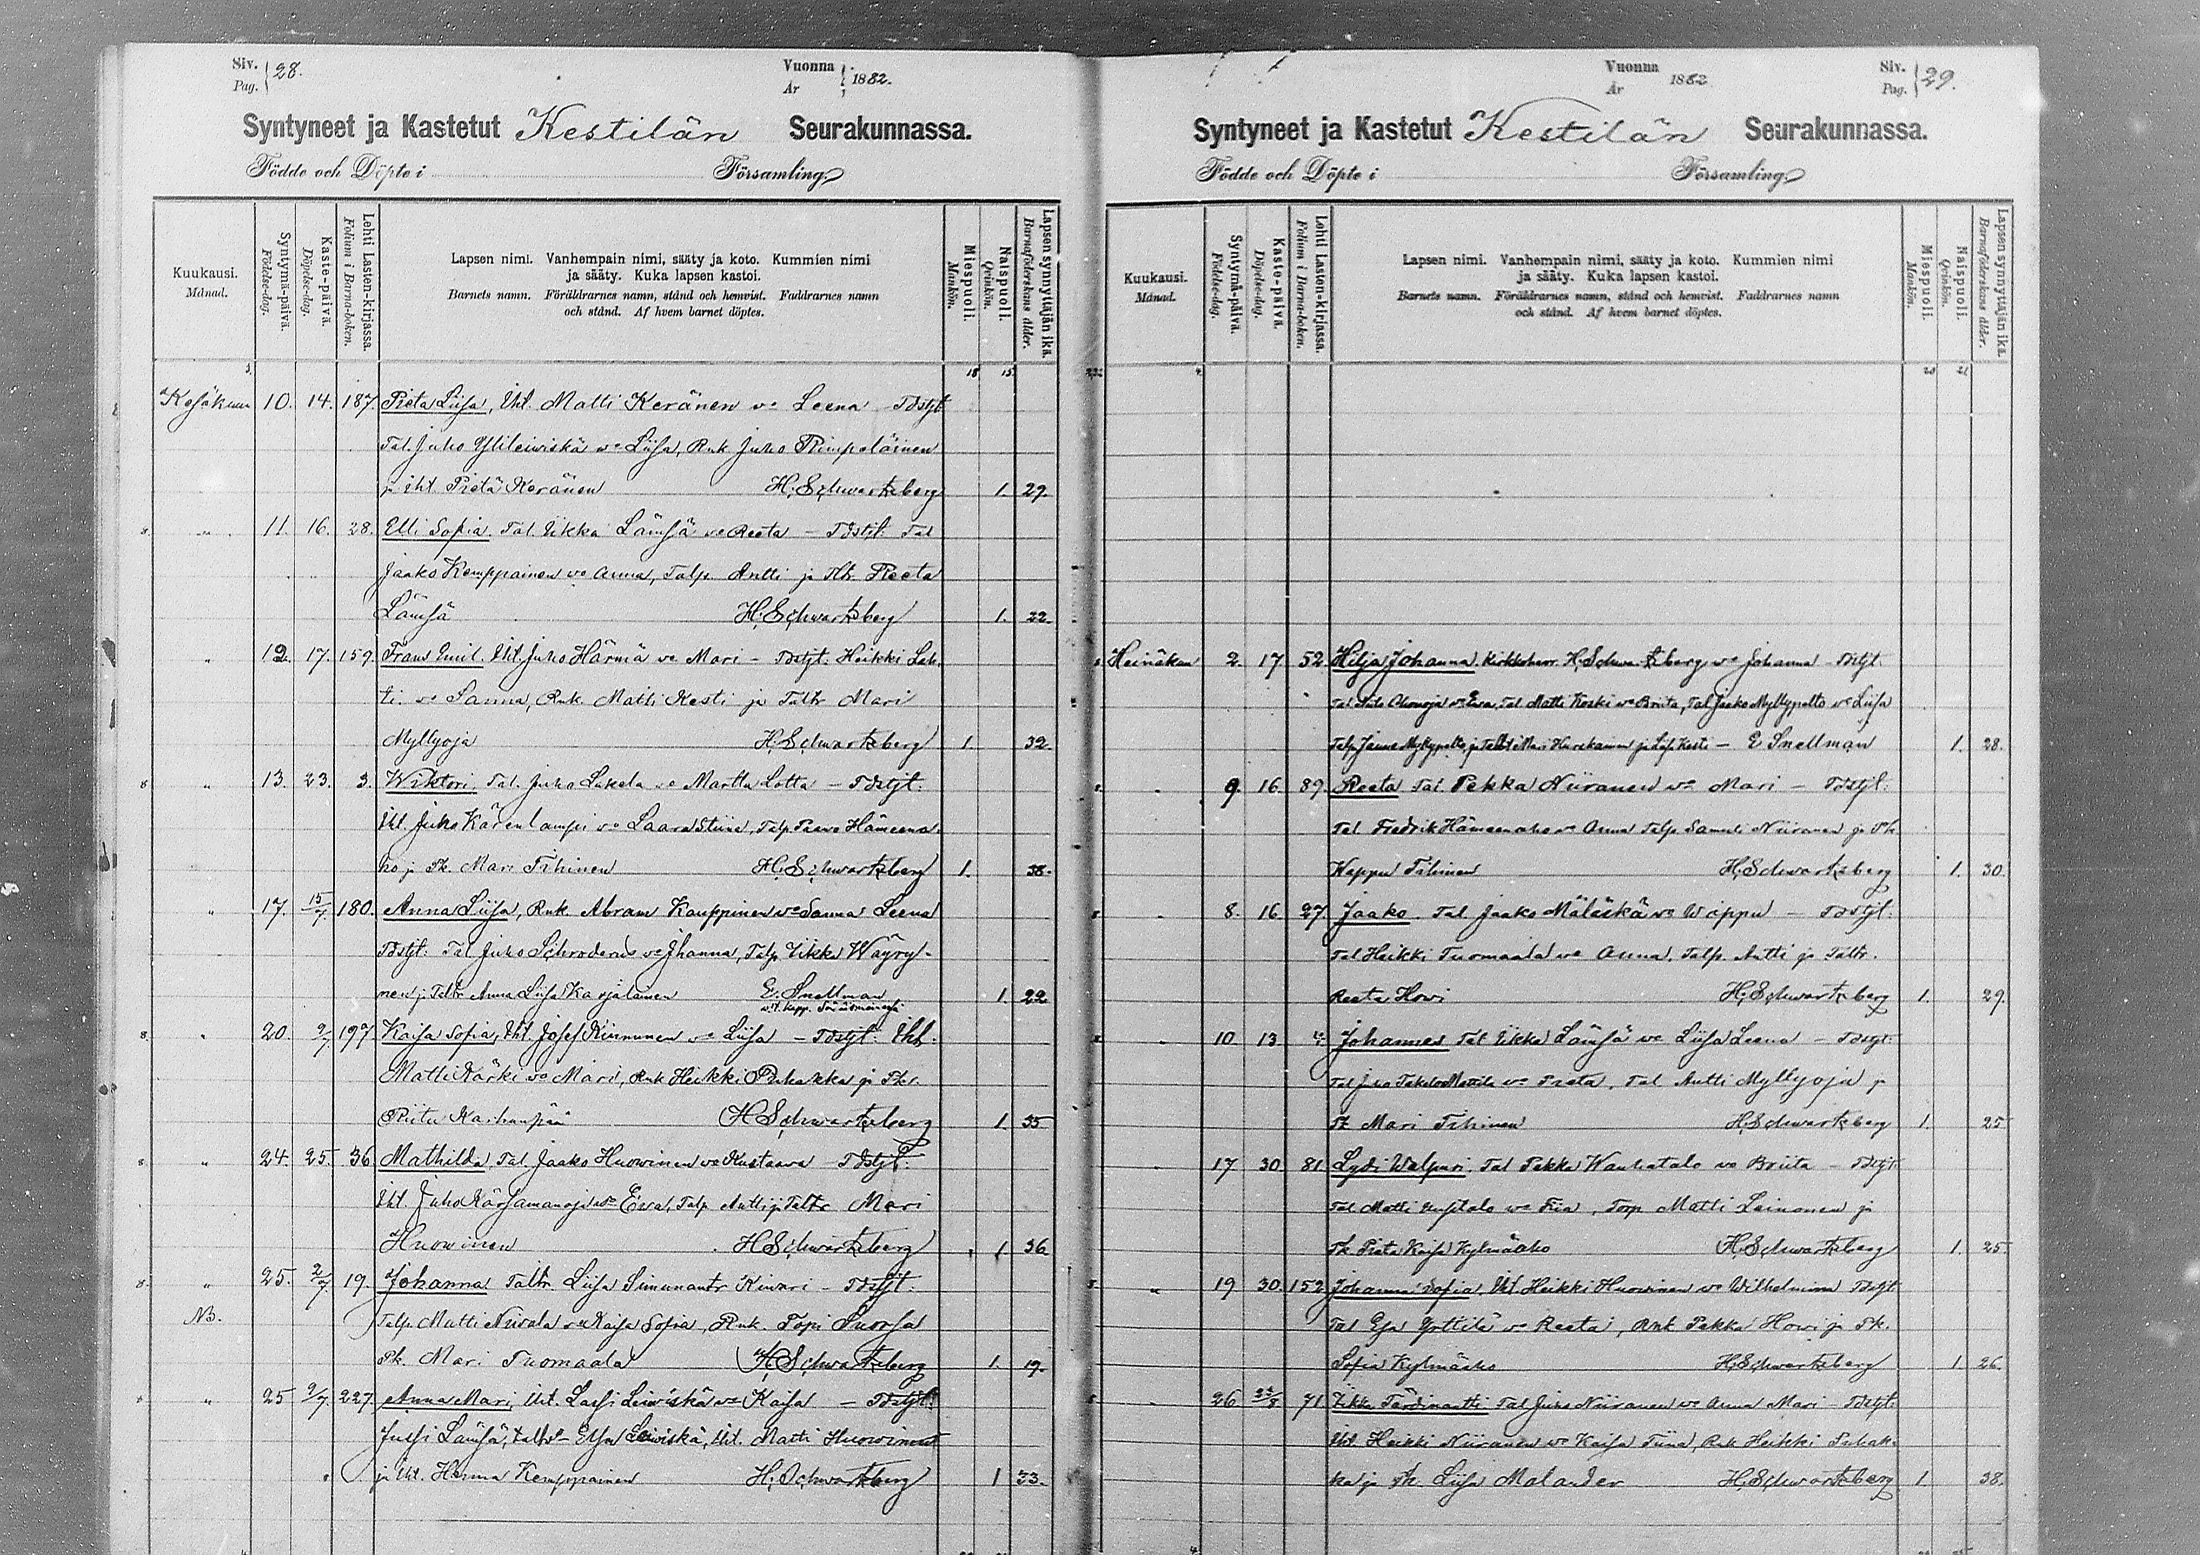 Siv. Pag. 28.
Vuonna År 1882.
Syntyneet ja Kastetut Kestilän Seurakunnassa.
Födde och Döpte i Församling.
Kuukausi. Månad.
Syntymä-päivä. Födelse-dag.
Kaste-päivä. Döpelse-dag.
Lehti Lasten-kirjassa. Folium i Barna-boken.
Lapsen nimi. Vanhempain nimi, sääty ja koto. Kummien nimi
ja sääty. Kuka lapsen kastoi.
Barnets namn. Föräldrarnes namn, stånd och hemvist. Faddrarnes namn
och stånd. Af hvem barnet döptes.
Miespuoli. Mankön.
Naispuoli. Qvinkön.
Lapsen synnyttäjän ikä. Barnaföderskans ålder.
18 15
Kesäkuu 10. 14. 187. Pieta Liisa, Iht. Matti Keränen v:o Leena
Tal. Juho Ylileiviskä v:o Liisa, Rnk Juho Pimpeläinen
ja iht. Pietä Keränen H. Schwartzberg 1. 29.
" 11. 16. 28. Elli Sofia. Tal. Iikka Lämsä v:o Reeta
Jaako Kemppainen v:o Anna, Talp. Antti ja Reeta
Lämsä H. Schwartzberg 1. 22.
" 12. 17. 159. Frans Emil. Iht. Juho Härmä v:o Mari Heikki Leh-
ti v:o Sanna, Rnk. Matti Kesti ja Taltr Mari
Myllyoja H. Schwartzberg 1. 32.
" 13. 23. 3. Wiktori. Tal. Juho Lakela v:o Martta Lotta
Iht. Juho Kärenlampi v:o Laara Stiina, Talp. Paavo Hämeena-
ho ja Pk. Mari Tihinen H. Schwartzberg 1. 38.
" 17. 15/7 180. Anna Liisa, Rnk. Abram Kauppinen v:o Sanna Leena
Tal Juho Schroderus v:o Jhanna, Talp. Iikka Wäyry-
nen ja Taltr Anna Liisa Karjalainen E. Snellman 1 22
v.t. kapp. Säräisniemeltä
" 20. 9/7 197. Kaisa Sofia, Iht. Josef Kinnunen v:o Liisa Iht.
Matti Kärki v:o Mari, Rnk Heikki Puhakka ja
Riitu Karhunpää H Schwartzberg 1. 35
" 24. 25. 36. Mathilda, Tal. Jaako Huovinen v:o Kustaava
Iht. Juho Kärsämänoja v:o Eeva, Talp. Antti ja Taltr Mari
Huovinen H Schwartzberg 1 36
" 25. 2/7. 19. Johanna Taltr. Liisa Simunantr Kinari
NB. Talp. Matti Nivala v:o Kaisa Sofia, Rnk. Topi Suorsa
Pk. Mari Tuomaala H. Schwartzberg 1. 19.
" 25 2/7. 227. Anna Mari, Iht. Lassi Leiviskä v:o Kaisa
Jussi Lämsä, Eva Leiviskä, Iht. Matti Huovinen
ja Iht. Hanna Kemppainen H. Schwartzberg 1 33.
Siv. Pag. 29.
Vuonna År 1882
Syntyneet ja Kastetut Kestilän Seurakunnassa.
Födde och Döpte i Församling.
Kuukausi. Månad.
Syntymä-päivä. Födelse-dag.
Kaste-päivä. Döpelse-dag.
Lehti Lasten-kirjassa. Folium i Barna-boken.
Lapsen nimi. Vanhempain nimi, sääty ja koto. Kummien nimi
ja sääty. Kuka lapsen kastoi.
Barnets namn. Föräldrarnes namn, stånd och hemvist. Faddrarnes namn
och stånd. Af hvem barnet döptes.
Miespuoli. Mankön.
Naispuoli. Qvinkön.
Lapsen synnyttäjän ikä. Barnaföderskans ålder.
20 21
Heinäkuu 2. 17 52 Hilja Johanna. Kirkkoherr. H. Schwartzberg v:o Johanna
Eeva, Tal. Matti Koski v:o Briita, Tal. Juho Myllypelto v:o Liisa
Talp. Janne Myllypelto, ja Mari Hurskainen ja Kesti – E. Snellman 1. 28.
" 9. 16. 89. Reeta Tal. Pekka Niiranen v:o Mari
Tal Fredrik Hämeenaho v:o Anna Talp. Samuli Niiranen ja Pk
Kappu Tihinen H. Schwartzberg 1. 30.
" 8. 16 27. Jaako. Tal Jaako Mäläskä v:o Wappu
Tal Heikki Tuomaala v:o Anna, Talp. Antti ja Taltr.
Reeta Howi H. Schwartzberg 1. 29.
" 10 13 4. Johannes Tal Iikka Lämsä v:o Liisa Leena
v:o Pieta, Tal Antti Myllyoja ja
Mari Tihinen H. Schwartzberg 1. 25
17 30 81 Lydi Walpuri. Tal Pekka Wanhatalo v:o Briita
Tal Matti Uusitalo v:o Fiia, Torp Matti Leinonen ja
Pk. Pieta Kaisa Kylmäaho H Schwartzberg 1. 25
" 19 30. 152 Johanna Sofia, Iht. Heikki Huovinen v:o Wilhelmina
Tal Esa Yrttilä v:o Reeta, Rnk Pekka Howi ja Pk.
Sofia Kylmäaho H. Schwartzberg 1 26.
26 71 Iikka Färdinantti Tal Juho Niiranen v:o Anna Mari
Iht Heikki Niiranen v:o Kaisa Tiina, Rnk Heikki Puhak-
ka ja Pk. Liisa Malander H. Schwartzberg 1. 38.